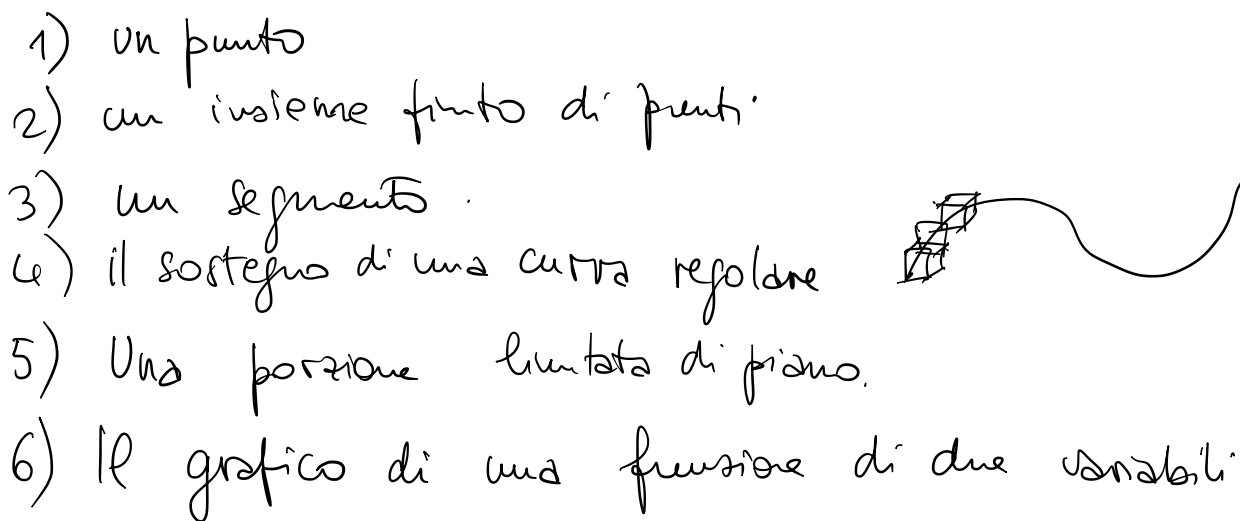 1) un punto
2) un insieme finito di punti
3) un segmento.
4) il sostegno di una curva regolare
5) Una porzione limitata di piano.
6) Il grafico di una funzione di due variabili